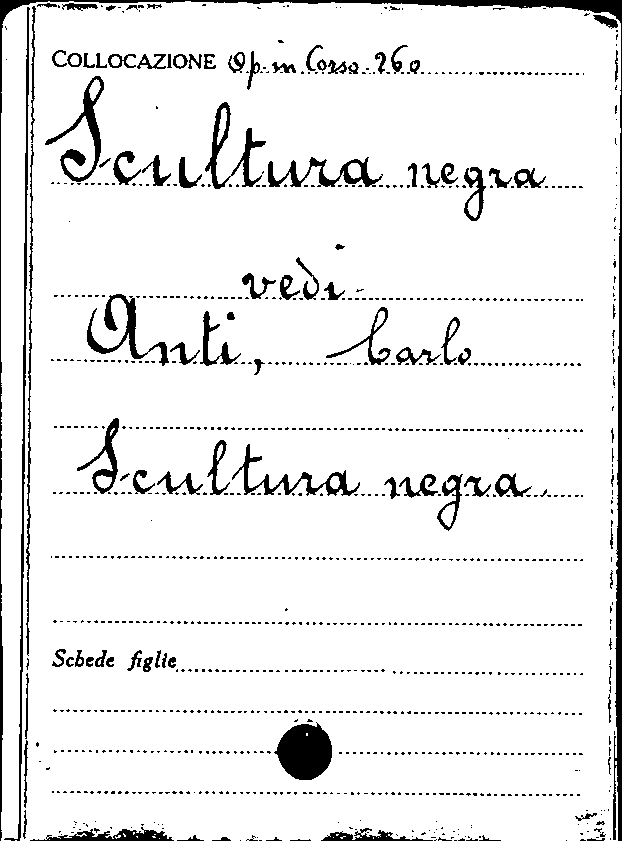 COLLOCAZIONE Op. in Corso. 260
Scultura negra
vedi
Anti, Carlo
Scultura negra.
Schede figlie